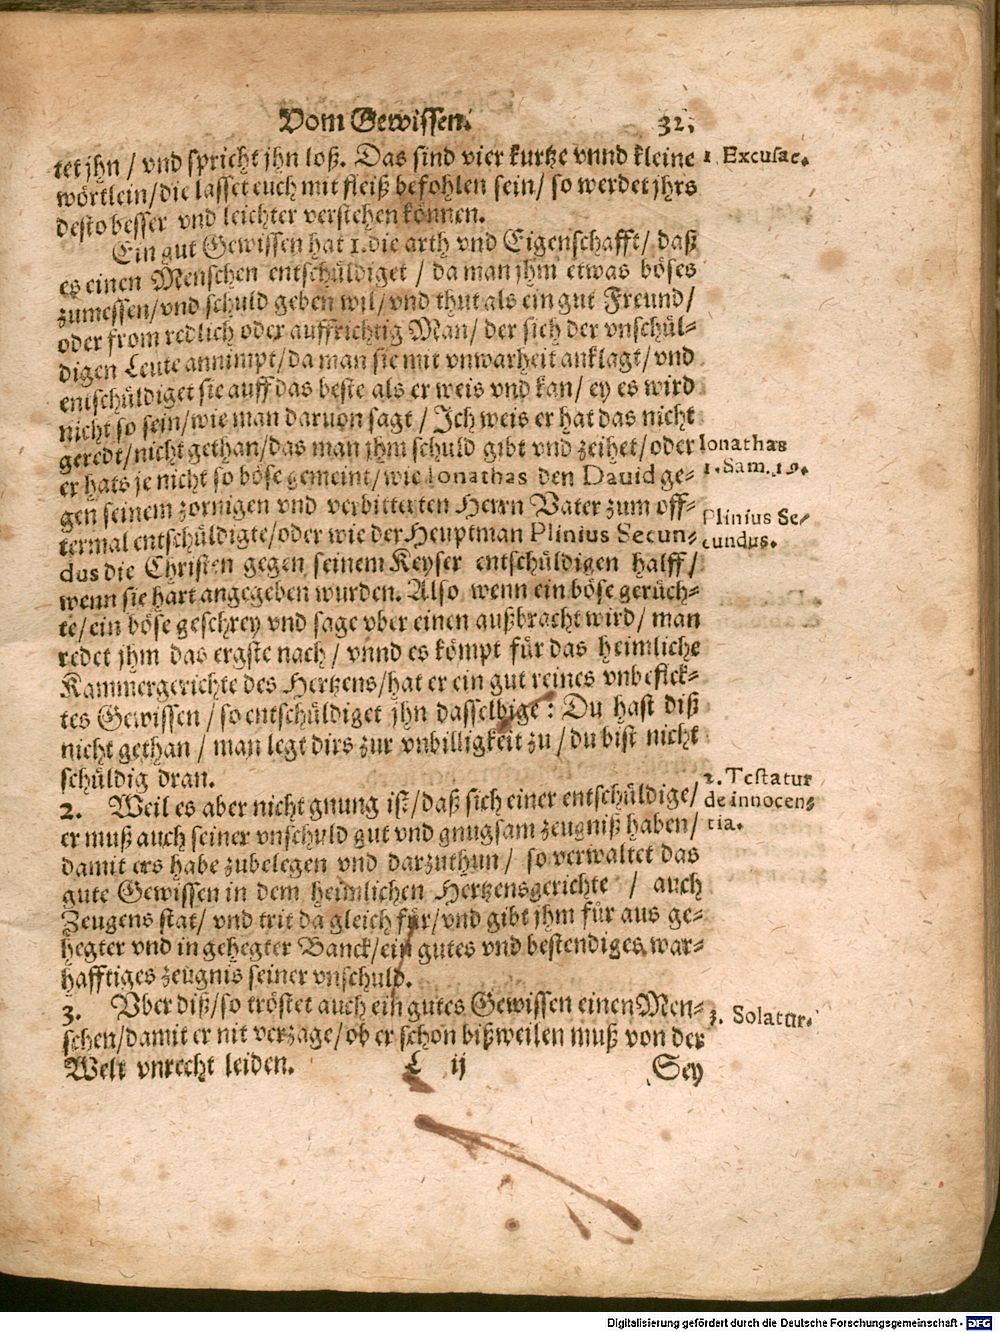 Vom Gewissen. 32.
tet jhn / vnd spricht jhn loß. Das sind vier kurtze vnnd kleine
1. Excusat.
wörtlein / die lasset euch mit fleiß befohlen sein / so werdet jhrs
desto besser vnd leichter verstehen können.
Ein gut Gewissen hat 1. die arth vnd Eigenschafft / daß
es einen Menschen entschüldiget / da man jhm etwas böses
zumessen / vnd schuld geben wil / vnd thut als ein gut Freund /
oder from redlich oder auffrichtig Man / der sich der vnschül-
digen Leute annimpt / da man sie mit vnwarheit anklagt / vnd
entschüldiget sie auff das beste als er weis vnd kan / ey es wird
nicht so sein / wie man daruon sagt / Ich weis er hat das nicht
geredt / nicht gethan / das man jhm schuld gibt vnd zeihet / oder
Ionathas
er hats je nicht so böse gemeint / wie Ionathas den Dauid ge-
1. Sam. 19.
gen seinem zornigen vnd verbitterten Herrn Vater zum off-
Plinius Se-
termal entschüldigte / oder wie der Heuptman Plinius Secun-
cundus.
dus die Christen gegen seinem Keyser entschüldigen halff /
wenn sie hart angegeben wurden. Also wenn ein böse gerüch-
te / ein böse geschrey vnd sage vber einen außbracht wird / man
redet jhm das ergste nach / vnnd es kömpt für das heimliche
Kammergerichte des Hertzens / hat er ein gut reines vnbefleck-
tes Gewissen / so entschüldiget jhn dasselbige: Du hast diß
nicht gethan / man legt dirs zur vnbilligkeit zu / du bist nicht
schüldig dran.
2. Testatur
2. Weil es aber nicht gnung ist / daß sich einer entschüldige /
de innocen-
er muß auch seiner vnschuld gut vnd gnugsam zeugniß haben /
tia.
damit ers habe zubelegen vnd darzuthun / so verwaltet das
gute Gewissen in dem heimlichen Hertzensgerichte / auch
Zeugens stat / vnd trit da gleich für / vnd gibt jhm für aus ge-
hegter vnd in gehegter Banck / ein gutes vnd bestendiges war-
hafftiges zeugnis seiner vnschuld.
3. Vber diß / so tröstet auch ein gutes Gewissen einen Men-
3. Solatur.
schen / damit er nit verzage / ob er schon bißweilen muß von der
Welt vnrecht leiden.
L ij Sey
Digitalisierung gefördert durch die Deutsche Forschungsgemeinschaft - DFG